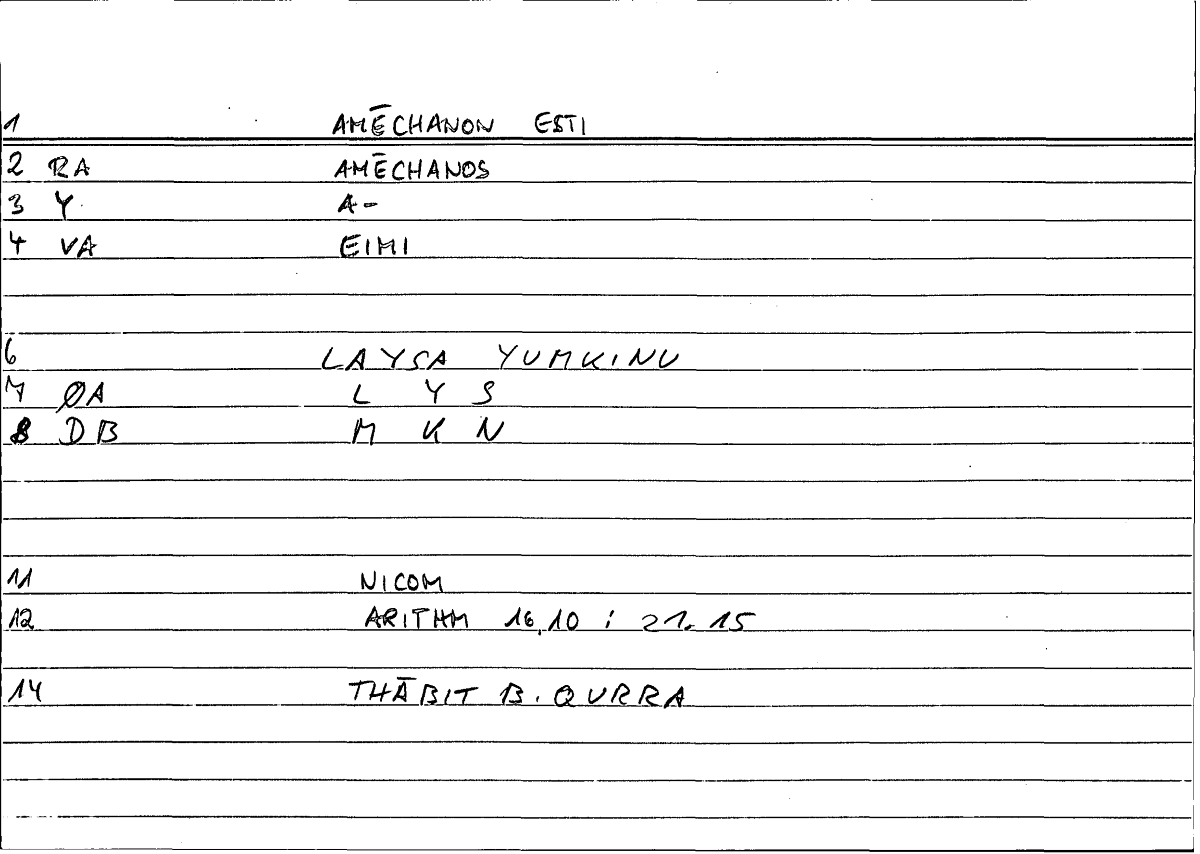 1 AMĒCHANON ESTI
2 RA AMĒCHANOS
3 Y A-
4 VA EIMI
6 LAYSA YUMKINU
7 ØA L Y S
8 DB M K N
11 NICOM
12 ARITHM 16,10 ; 21.15
14 THĀBIT B. QURRA